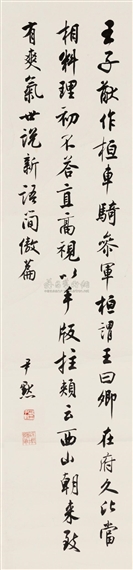 王子猷作桓車騎參軍桓謂王曰卿在府久比當
相料理初不答直高視以手版拄頰云西山朝來致
有爽氣世說新語簡傲篇
尹默